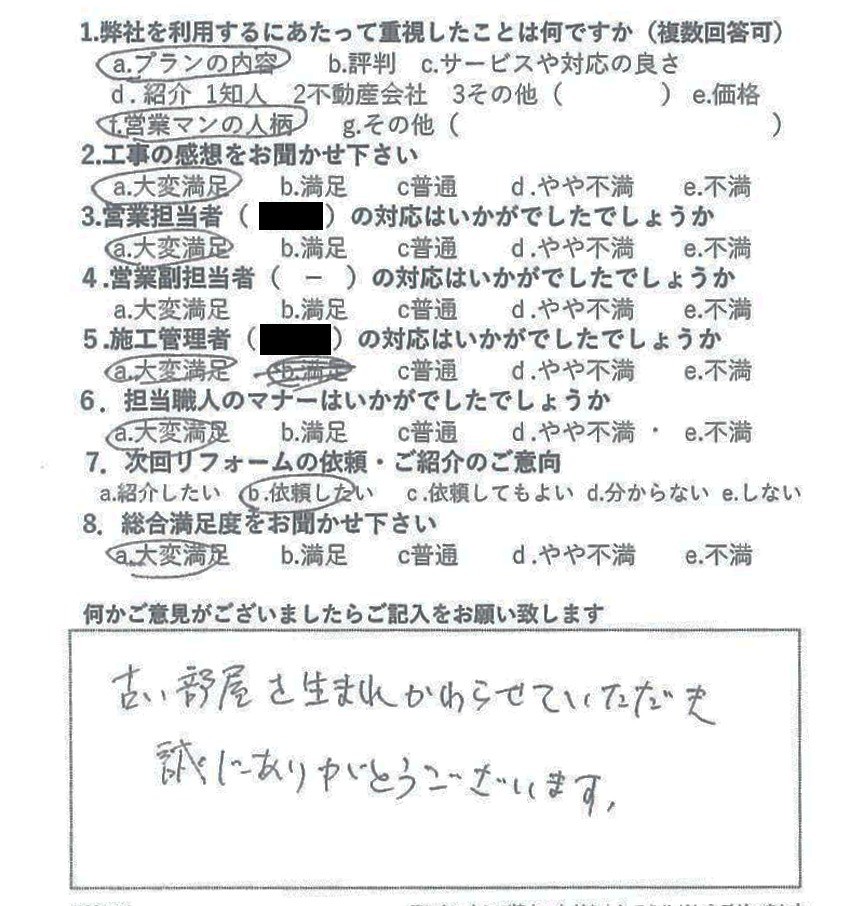 1.弊社を利用するにあたって重視したことは何ですか（複数回答可）
a.プランの内容 b.評判 c.サービスや対応の良さ
d.紹介 1知人 2不動産会社 3その他（ ） e.価格
f.営業マンの人柄 g.その他（ ）
2.工事の感想をお聞かせ下さい
a.大変満足 b.満足 c普通 d.やや不満 e.不満
3.営業担当者（ ）の対応はいかがでしたでしょうか
a.大変満足 b.満足 c普通 d.やや不満 e.不満
4.営業副担当者（ － ）の対応はいかがでしたでしょうか
a.大変満足 b.満足 c普通 d.やや不満 e.不満
5.施工管理者（ ）の対応はいかがでしたでしょうか
a.大変満足 b.満足 c普通 d.やや不満 e.不満
6. 担当職人のマナーはいかがでしたでしょうか
a.大変満足 b.満足 c普通 d.やや不満・ e.不満
7. 次回リフォームの依頼・ご紹介のご意向
a.紹介したい b.依頼したい c.依頼してもよい d.分からない e.しない
8. 総合満足度をお聞かせ下さい
a.大変満足 b.満足 c普通 d.やや不満 e.不満
何かご意見がございましたらご記入をお願い致します
古い部屋を生まれかわらせていただき
誠にありがとうございます。